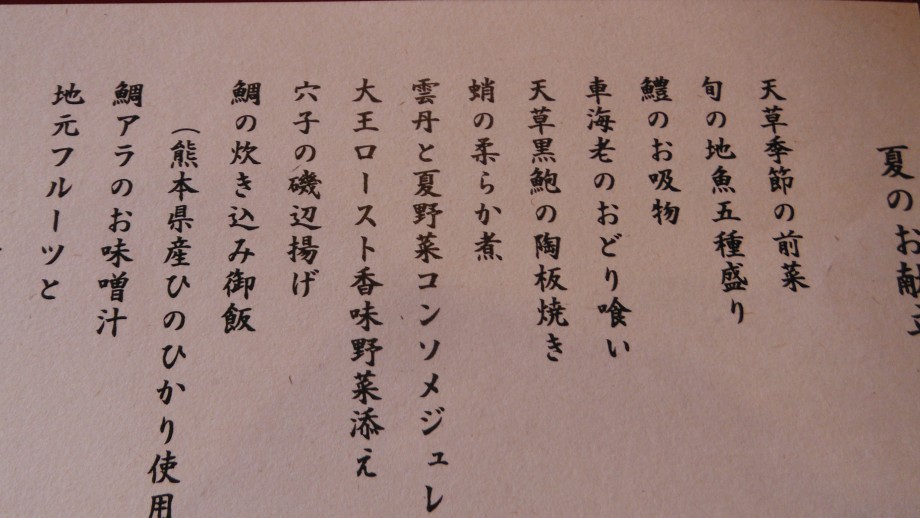 夏のお献立
天草季節の前菜
旬の地魚五種盛り
鱧のお吸物
車海老のおどり喰い
天草黒鮑の陶板焼き
蛸の柔らか煮
雲丹と夏野菜コンソメジュレ
大王ロースト香味野菜添え
穴子の磯辺揚げ
鯛の炊き込み御飯
（熊本県産ひのひかり使用
鯛アラのお味噌汁
地元フルーツと